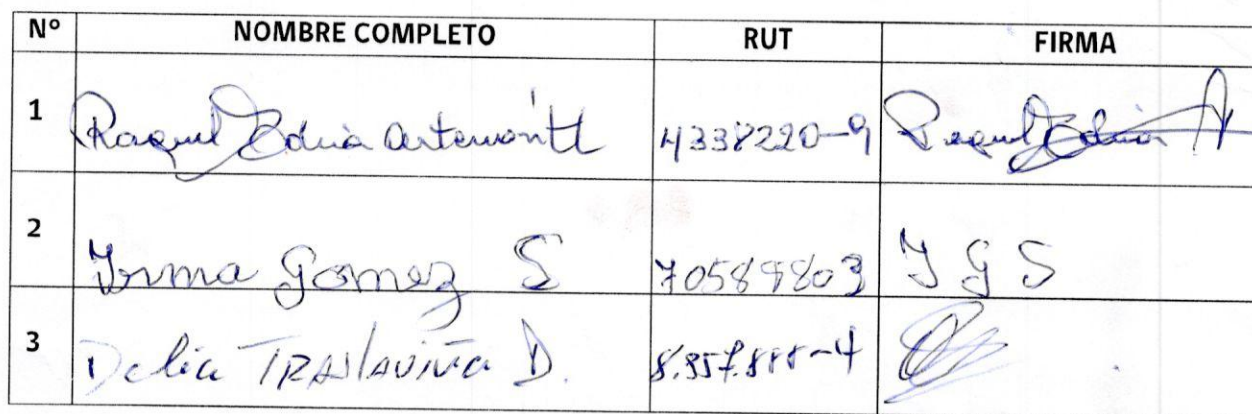 Nº NOMBRE COMPLETO RUT FIRMA
1 Raquel Edina Artemontt 4338220-9 Raquel Edina A
2 Irma Gomez S 70589803 I G S
3 Delia TRASLAVIÑA D.